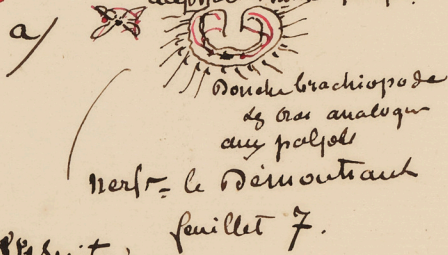 a/
Bouche brachiopode
les bras analogues
aux palpes
nerfs = le Démontrant
feuillet 7.